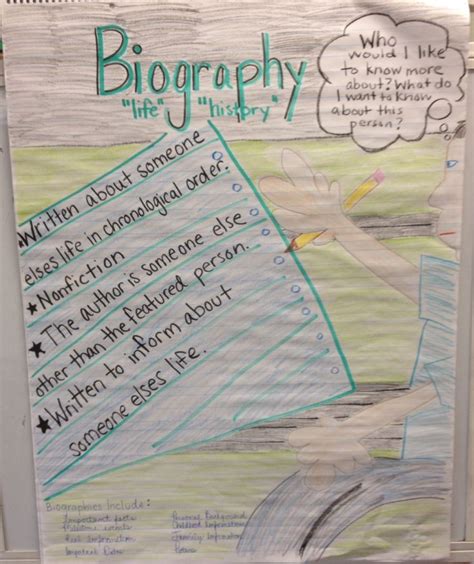 Biography
"life" "history"
Who
would I like
to know more
about? What do
I want to know
about this
person?
★Written about someone
elses life in chronological order.
★Nonfiction
★ The author is someone else
other than the featured person.
★Written to inform about
someone elses life.
Biographies Include:
Important facts
Personal Background
Childhood Information